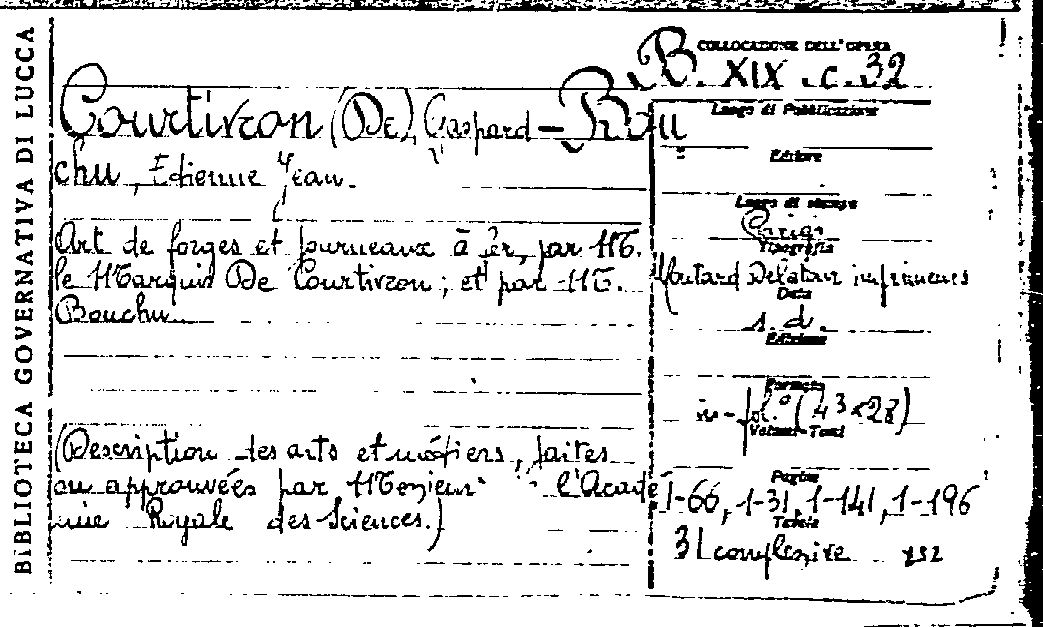 BIBLIOTECA GOVERNATIVA DI LUCCA
COLLOCAZIONE DELL'OPERA
B. XIX . c . 32
Courtivron (De), Gaspard - Bou
chu, Etienne Jean.
Art de forges et fourneaux à fer, par M.
le Marquis De Courtivron ; et par M.
Bouchu.
(Description des arts et métiers, faites
ou approuvées par Messieurs l'Acadé
mie Royale des Sciences.)
Luogo di Pubblicazione
Editore
Luogo di stampa
Paris
Tipografia
Moutard Delatour imprimeurs
Data
s. d.
Edizione
Formato
in-fol.° (43×28)
Volumi-Tomi
Pagine
1-66, 1-31, 1-141, 1-196
Tavole
31 complessive